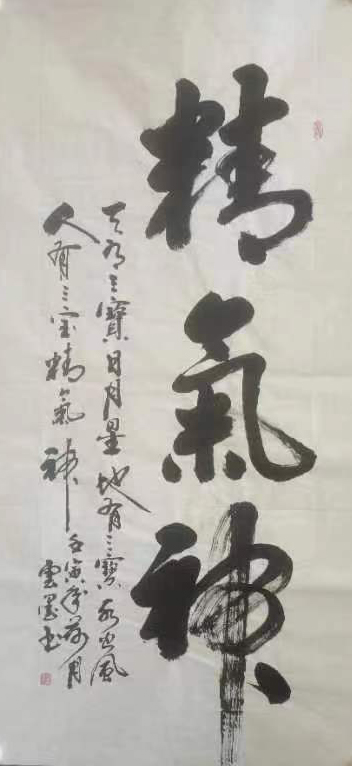 精氣神
天有三寶日月星地有三寶水火風
人有三宝精氣神壬寅年荷月
雲墨书